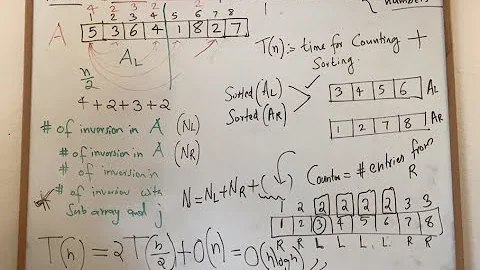 numbers
4 2 3 2
1 2 3 4 5 6 7 8
A 5 3 6 4 1 8 2 7
T(n) := time for Counting +
Sorting
A_L
n/2
4+2+3+2
Sorted (A_L)
3 4 5 6 A_L
Sorted (A_R)
1 2 7 8 A_R
# of inversion in A (N_L)
# of inversion in A (N_R)
# of inversion in
# of inversion with
Sub array and j
N = N_L + N_R + (
Counter = # entries from
R
1 2 2 2 2 2 3 3
1 2 3 4 5 6 7 8
R R L L L L R R
T(n) = 2T(n/2) + O(n) = O(n log n)